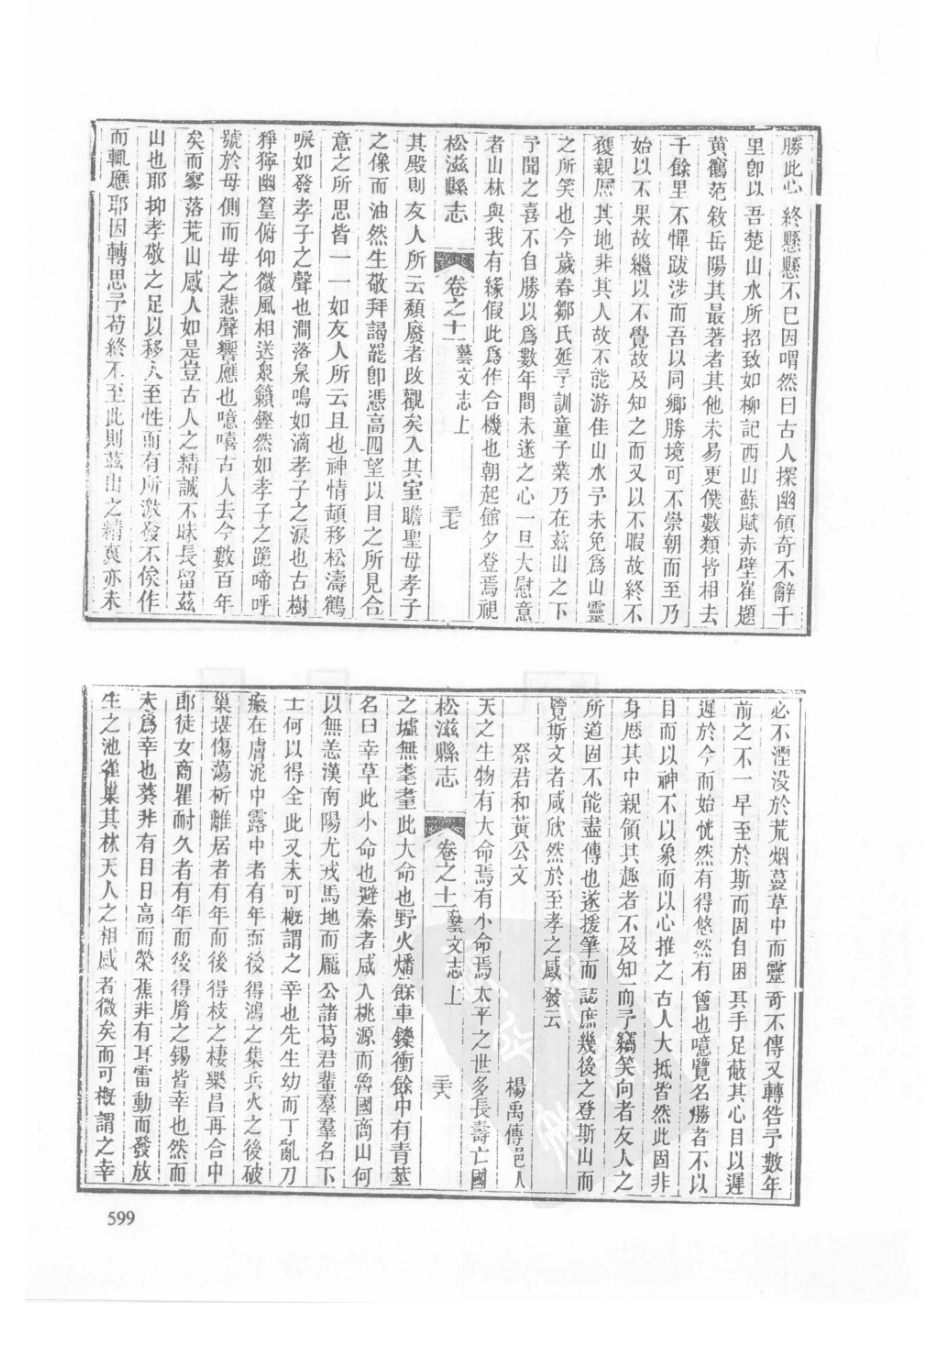 勝此心終懸懸不巳因喟然曰古人探幽領奇不辭千
里卽以吾楚山水所招致如柳記西山蘇賦赤壁崔題
黃鶴范敘岳陽其最著者其他未易更僕數類皆相去
千餘里不憚跋涉而吾以同鄉勝境可不崇朝而至乃
始以不果故繼以不覺故及知之而又以不暇故終不
獲親歷其地非其人故不能游佳山水予未免爲山靈
之所笑也今歲春鄒氏延予訓童子業乃在茲山之下
予聞之喜不自勝以爲數年間未遂之心一旦大慰意
者山林與我有緣假此爲作合機也朝起館夕登焉視
松滋縣志 卷之十一藝文志上 三七
其殿則友人所云頹廢者改觀矣入其室瞻聖母孝子
之像而油然生敬拜謁罷卽憑高四望以目之所見合
意之所思皆一一如友人所云且也神情頓移松濤鶴
唳如發孝子之聲也澗落泉鳴如滴孝子之淚也古樹
猙獰幽篁俯仰微風相送衆籟鏗然如孝子之跪啼呼
號於母側而母之悲聲響應也噫嘻古人去今數百年
矣而寥落荒山感人如是豈古人之精誠不昧長留茲
山也耶抑孝敬之足以移人至性而有所激發不俟作
而輒應耶因轉思予苟終不至此則茲山之精爽亦未
必不湮没於荒烟蔓草中而靈奇不傳又轉咎予數年
前之不一早至於斯而固自困其手足蔽其心目以遲
遲於今而始恍然有得悠然有會也噫覽名勝者不以
目而以神不以象而以心推之古人大抵皆然此固非
身歷其中親領其趣者不及知而予竊笑向者友人之
所道固不能盡傳也遂援筆而誌庶幾後之登斯山而
覽斯文者咸欣然於至孝之感發云
祭君和黃公文 楊禹傳邑人
天之生物有大命焉有小命焉太平之世多長壽亡國
松滋縣志 卷之十一藝文志上 三六
之墟無耄耋此大命也野火燔餘車鑠衝餘中有青莖
名曰幸草此小命也避秦者咸入桃源而魯國商山何
以無恙漢南陽尤戎馬地而龐公諸葛君輩羣羣名下
士何以得全此又未可槪謂之幸也先生幼而丁亂刀
瘢在膚泥中露中者有年而後得鴻之集兵火之後破
巢堪傷蕩析離居者有年而後得枝之棲樂昌再合中
郎徒女商瞿耐久者有年而後得胤之錫皆幸也然而
未爲幸也葵非有日日高而榮蕉非有耳雷動而發放
生之池雀巢其林天人之相感者微矣而可槪謂之幸
599